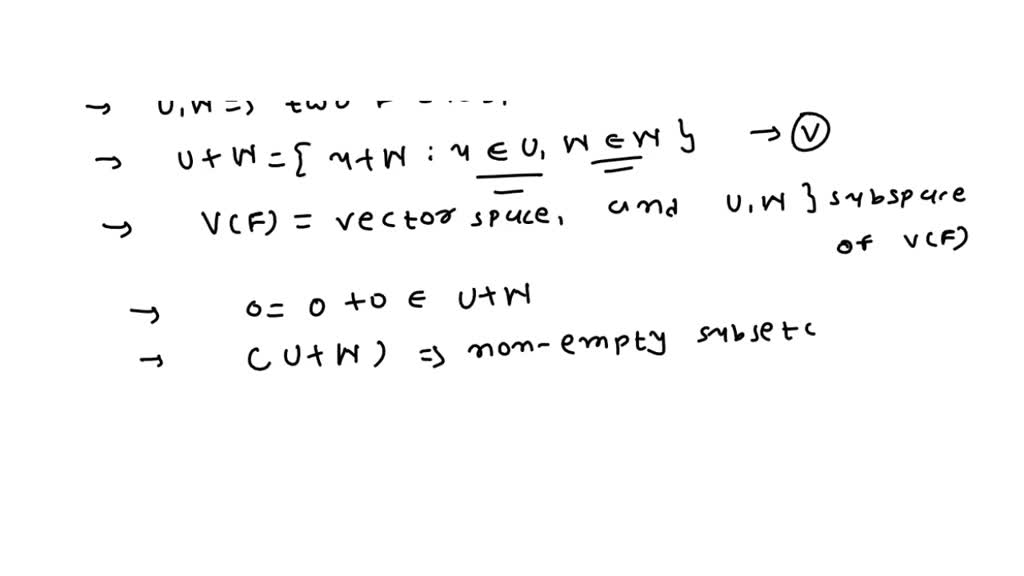 → U, W => two
→ U + W = { u + W : u ∈ U, W ∈ W } → V
→ V(F) = vector space, and U, W } subspace
of V(F)
→ 0 = 0 + 0 ∈ U + W
→ ( U + W ) => non-empty subset